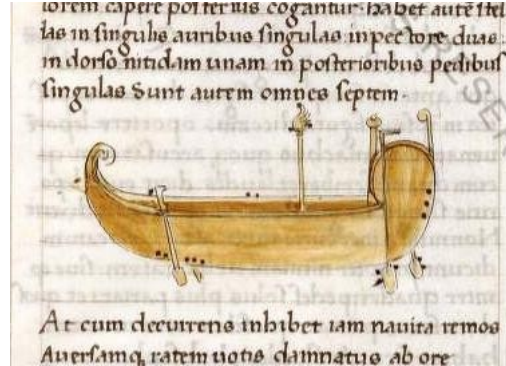 lorem capere posterius cogantur. habet autē stel
las in singulis auribus singulas inpectore duas.
in dorso nitidam unam in posterioribus pedibus
singulas Sunt autem omnes septem.
At cum decurrens inhibet iam nauita remos
Auersamq ratem uotis damnatus ab ore